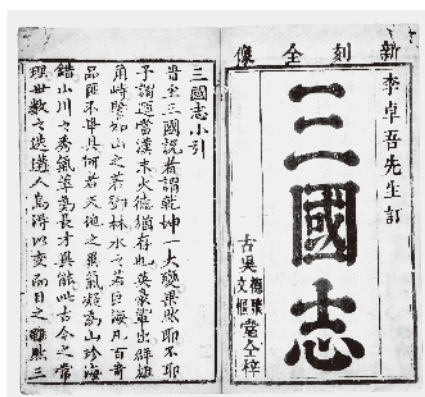 新刻全像
李卓吾先生訂
三國志
古吳德聚文樞堂仝梓
三國志小引
晉至三國說者謂乾坤一大變果然耶不耶
予謂運當漢末火德猶存也英豪輩出群雄
角峙譬如山之若鄧林水之若巨海凡百奇
品匯不畢具何若天地之異氣凝為山珍海
錯山川之秀氣萃為長才異能此古今之常
理世數之迭遘人烏得以變而目之雖然三